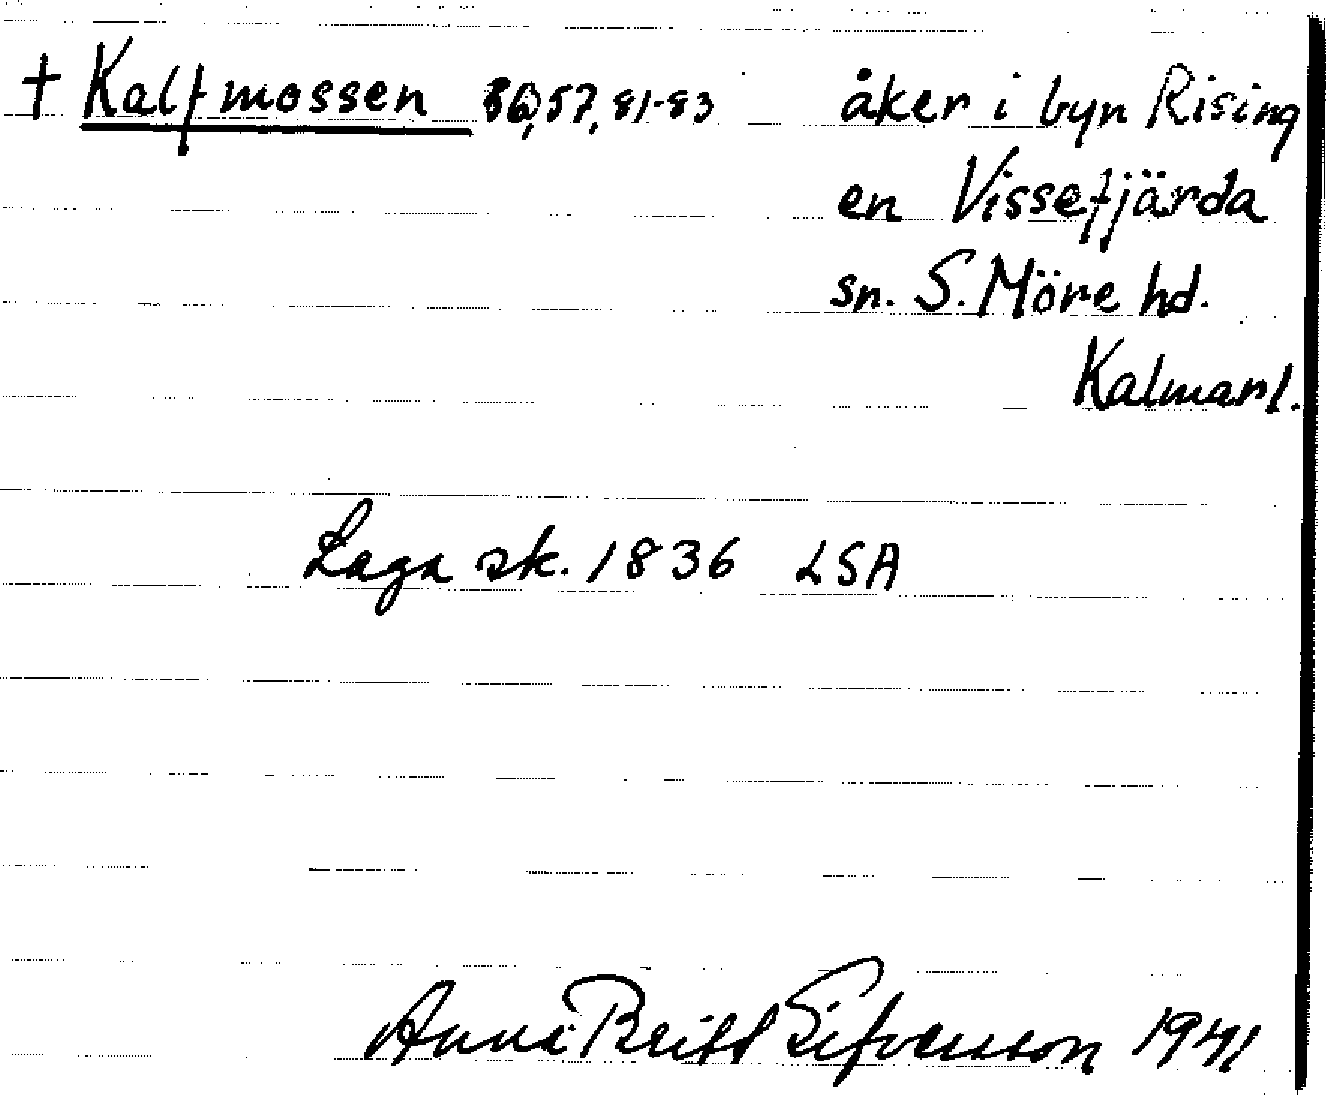 † Kalfmossen 56,57, 81-83 åker i byn Rising
en Vissefjärda
sn. S. Möre hd.
Kalmar l.
Laga sk. 1836 LSA
Anna Britt 1941